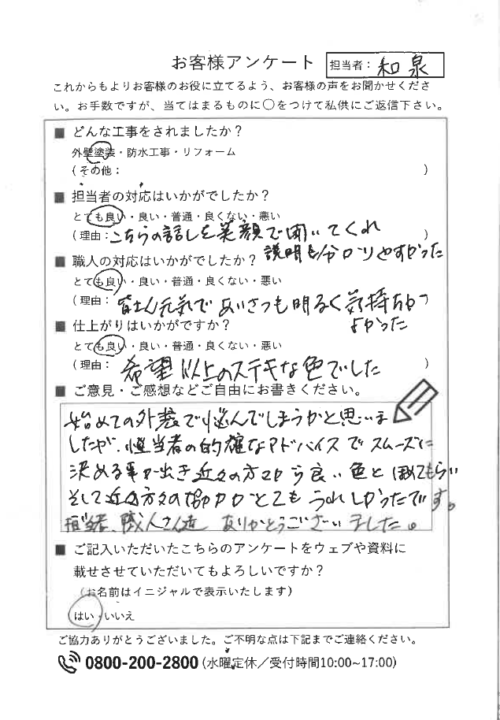 お客様アンケート 担当者： 和泉
これからもよりお客様のお役に立てるよう、お客様の声をお聞かせくださ
い。お手数ですが、当てはまるものに○をつけて私供にご返信下さい。
■ どんな工事をされましたか？
外壁塗装・防水工事・リフォーム
（その他： ）
■ 担当者の対応はいかがでしたか？
とても良い・良い・普通・良くない・悪い
（理由：こちらの話しを笑顔で聞いてくれ ）
説明も分かりやすかった
■ 職人の対応はいかがでしたか？
とても良い・良い・普通・良くない・悪い
（理由： 皆さん元気であいさつも明るく気持ちがつ ）
よかった
■ 仕上がりはいかがですか？
とても良い・良い・普通・良くない・悪い
（理由： 希望以上のステキな色でした ）
■ ご意見・ご感想などご自由にお書きください。
始めての外装で悩んでしまうかと思いま
したが、担当者の的確なアドバイスでスムーズに
決める事が出き近々の方々から良い色とほめてもらい
そして近々方々の協力がとてもうれしかったです。
担当者、職人さん達 ありがとうございました。
■ ご記入いただいたこちらのアンケートをウェブや資料に
載せさせていただいてもよろしいですか？
（お名前はイニジャルで表示いたします）
はい・いいえ
ご協力ありがとうございました。ご不明な点は下記までご連絡ください。
0800-200-2800 (水曜定休／受付時間10:00~17:00)